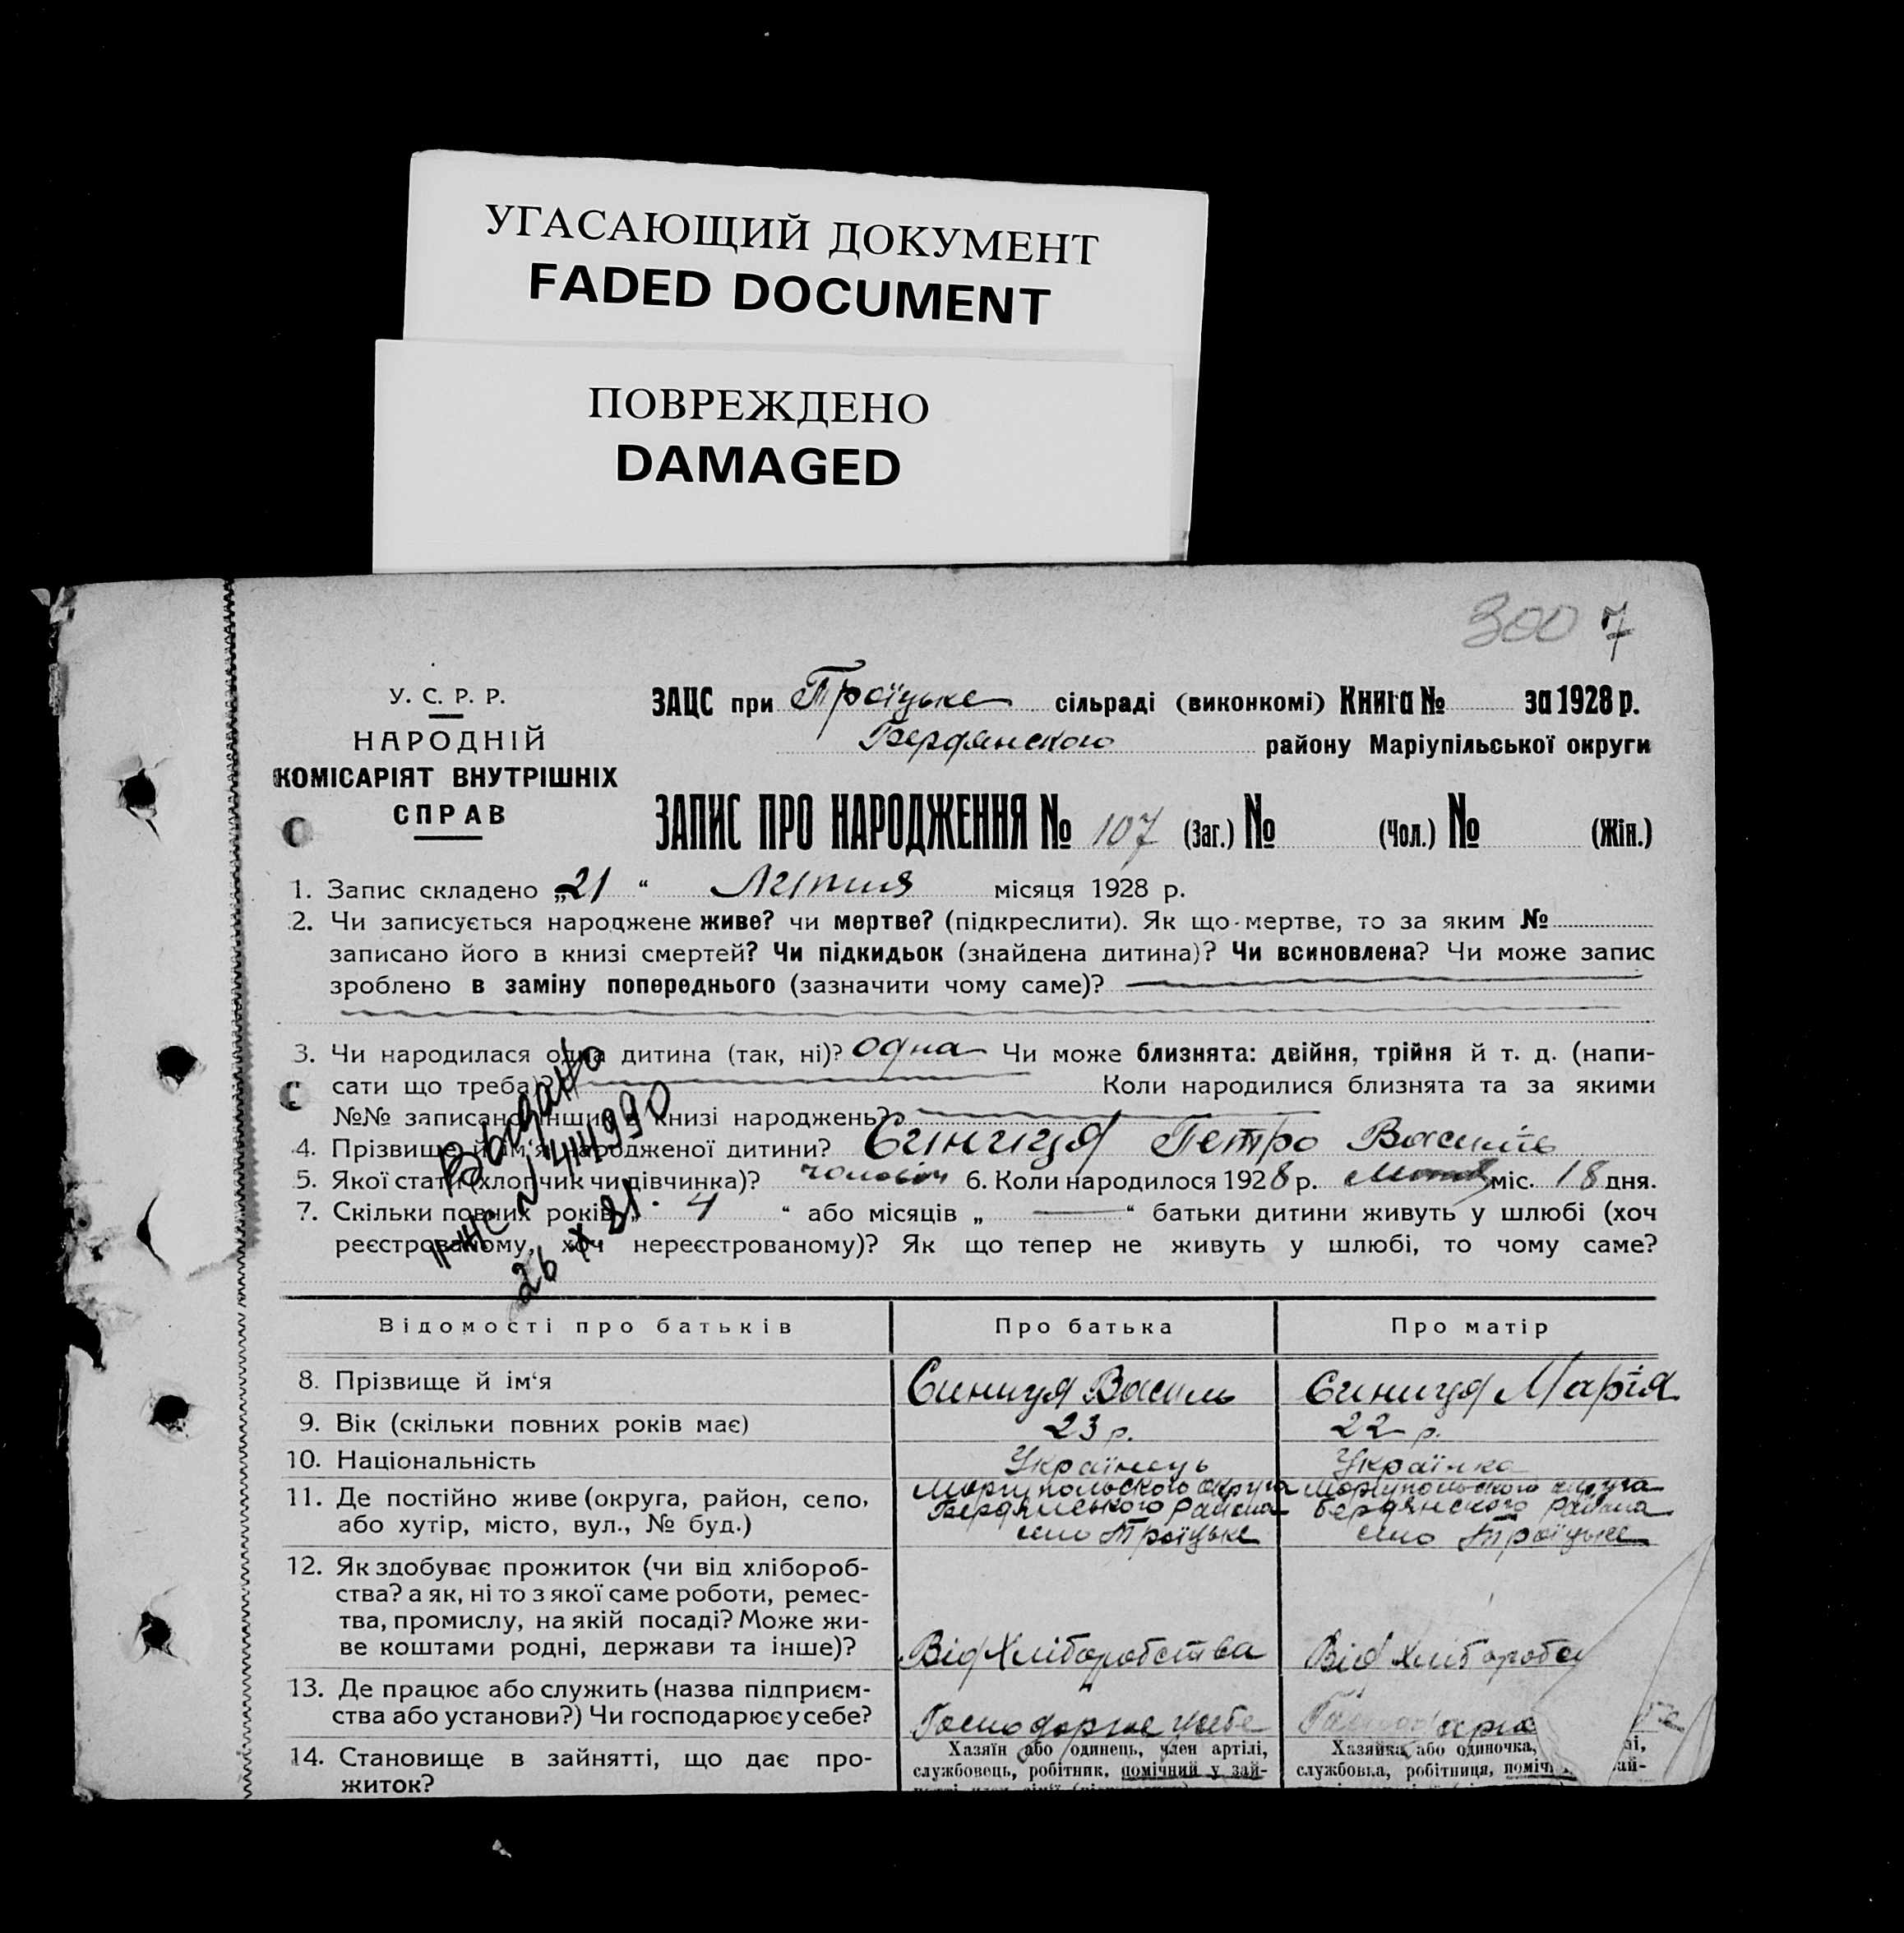 УГАСАЮЩИЙ ДОКУМЕНТ
FADED DOCUMENT
ПОВРЕЖДЕНО
DAMAGED
300 7
У. С. Р. Р.
НАРОДНІЙ
КОМІСАРІЯТ ВНУТРІШНІХ
СПРАВ
ЗАЦС при Троїцьке сільраді (виконкомі) Книга № за 1928 р.
Бердянского району Маріупільської округи
ЗАПИС ПРО НАРОДЖЕННЯ № 107 (Заг.) № (Чол.) № (Жін.)
1. Запис складено „21 “ Липня місяця 1928 р.
2. Чи записується народжене живе? чи мертве? (підкреслити). Як що-мертве, то за яким №
записано його в книзі смертей? Чи підкидьок (знайдена дитина)? Чи всиновлена? Чи може запис
зроблено в заміну попереднього (зазначити чому саме)?
3. Чи народилася одна дитина (так, ні)? одна Чи може близнята: двійня, трійня й т. д. (напи-
сати що треба)? Коли народилися близнята та за якими
№№ записано інших в книзі народжень?
4. Прізвище й ім‘я народженої дитини? Синиця Петро
5. Якої стати (хлопчик чи дівчинка)? 6. Коли народилося 1928 р. міс. 18 дня.
7. Скільки повних років „ 4 “ або місяців „ “ батьки дитини живуть у шлюбі (хоч
реєстрованому, хоч нереєстрованому)? Як що тепер не живуть у шлюбі, то чому саме?
Выдано
ІІ-ЖС № 414990
26 X 81.
Відомості про батьків Про батька Про матір
8. Прізвище й ім‘я Синиця Василь Синиця Марія
9. Вік (скільки повних років має) 23 р. 22 р.
10. Національність Українець Українка
11. Де постійно живе (округа, район, село,
або хутір, місто, вул., № буд.)
Маріупольского округа Маріупольского округа
Бердянського района Бердянского района
село Троїцьке село Троїцьке
12. Як здобуває прожиток (чи від хлібороб-
ства? а як, ні то з якої саме роботи, ремес-
тва, промислу, на якій посаді? Може жи-
ве коштами родні, держави та інше)? Від Хліборобства Від хлібороба
13. Де працює або служить (назва підприєм-
ства або установи?) Чи господарює у себе? Господарює у себе
14. Становище в зайнятті, що дає про-
житок?
Хазяїн або одинець, член артілі, Хазяйка або одиночка,
службовець, робітник, помічний у зай- службовка, робітниця,